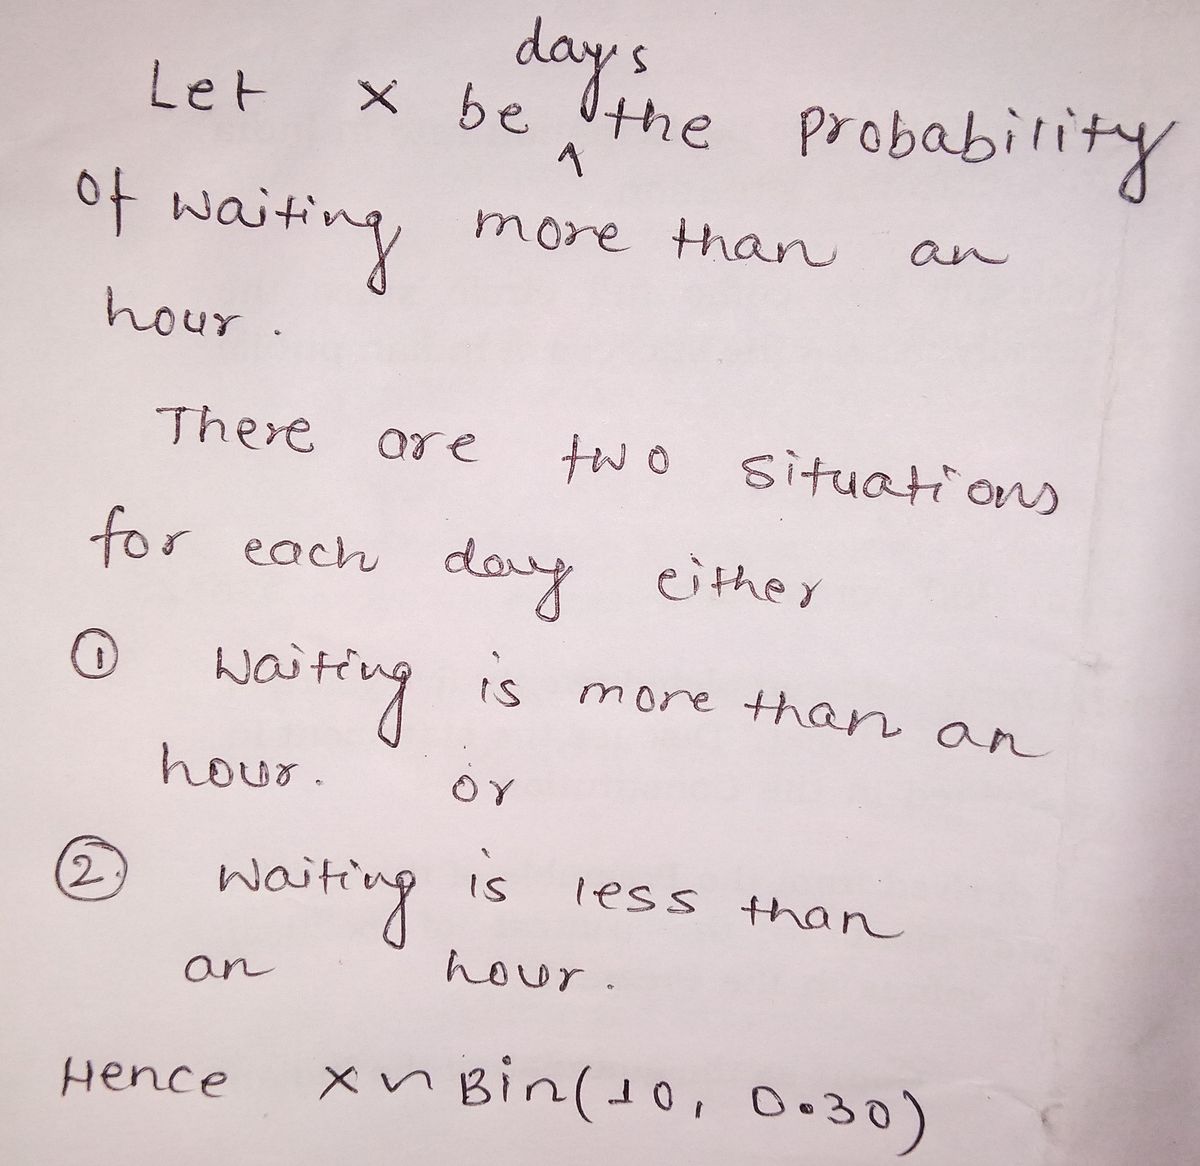 days
Let x be ^ the probability
of waiting more than an
hour.
There are two situations
for each day either
① Waiting is more than an
hour. or
② Waiting is less than
an hour.
Hence x ~ Bin(10, 0.30)